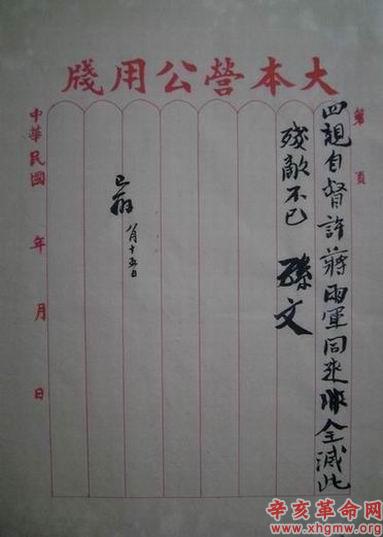 大本營公用牋
第 頁
四親自督許蔣兩軍同來非全滅此
殘敵不已 孫文
八月十五日
中華民國 年 月 日
辛亥革命网
www.xhgmw.org